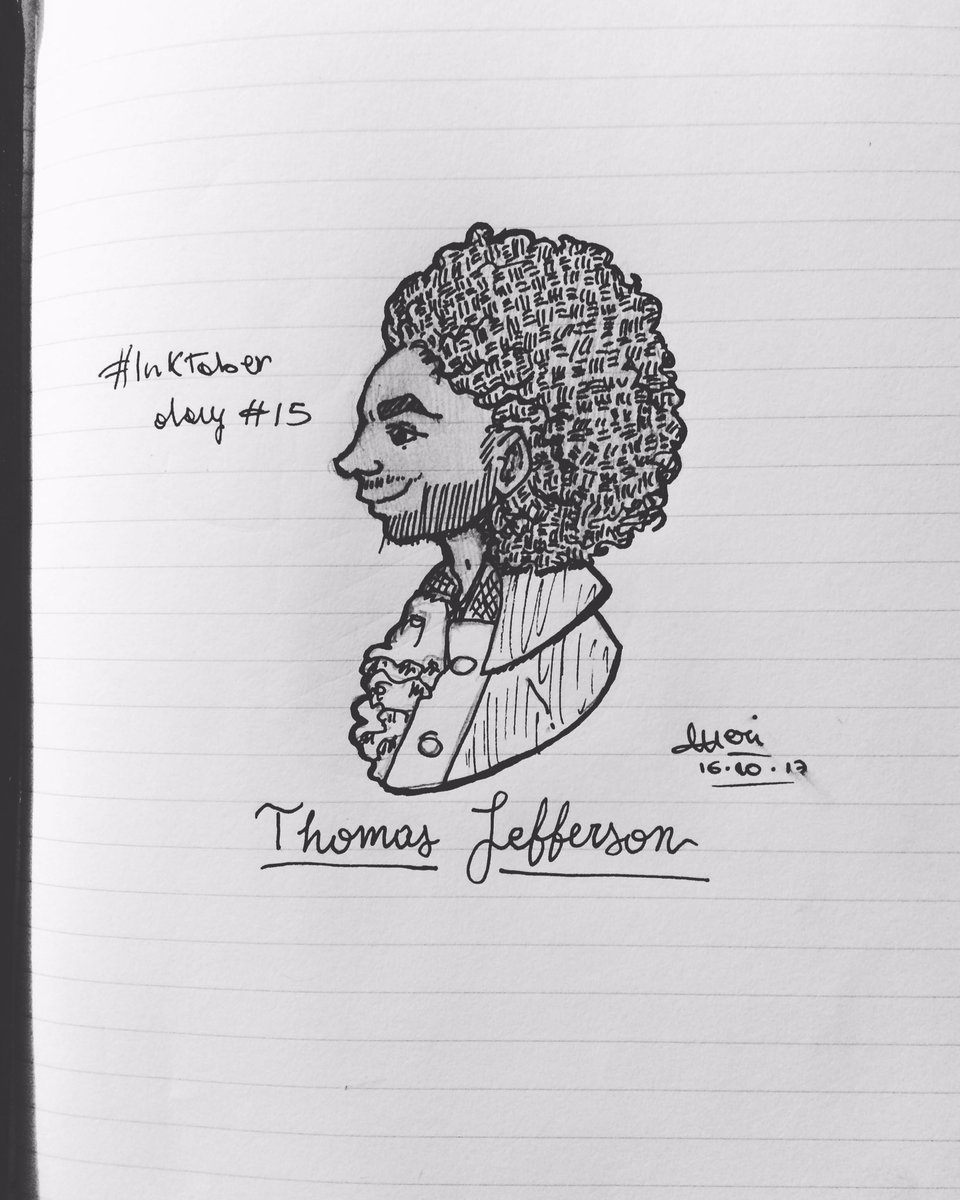 #InkTober
day #15
16.10.17
Thomas Jefferson